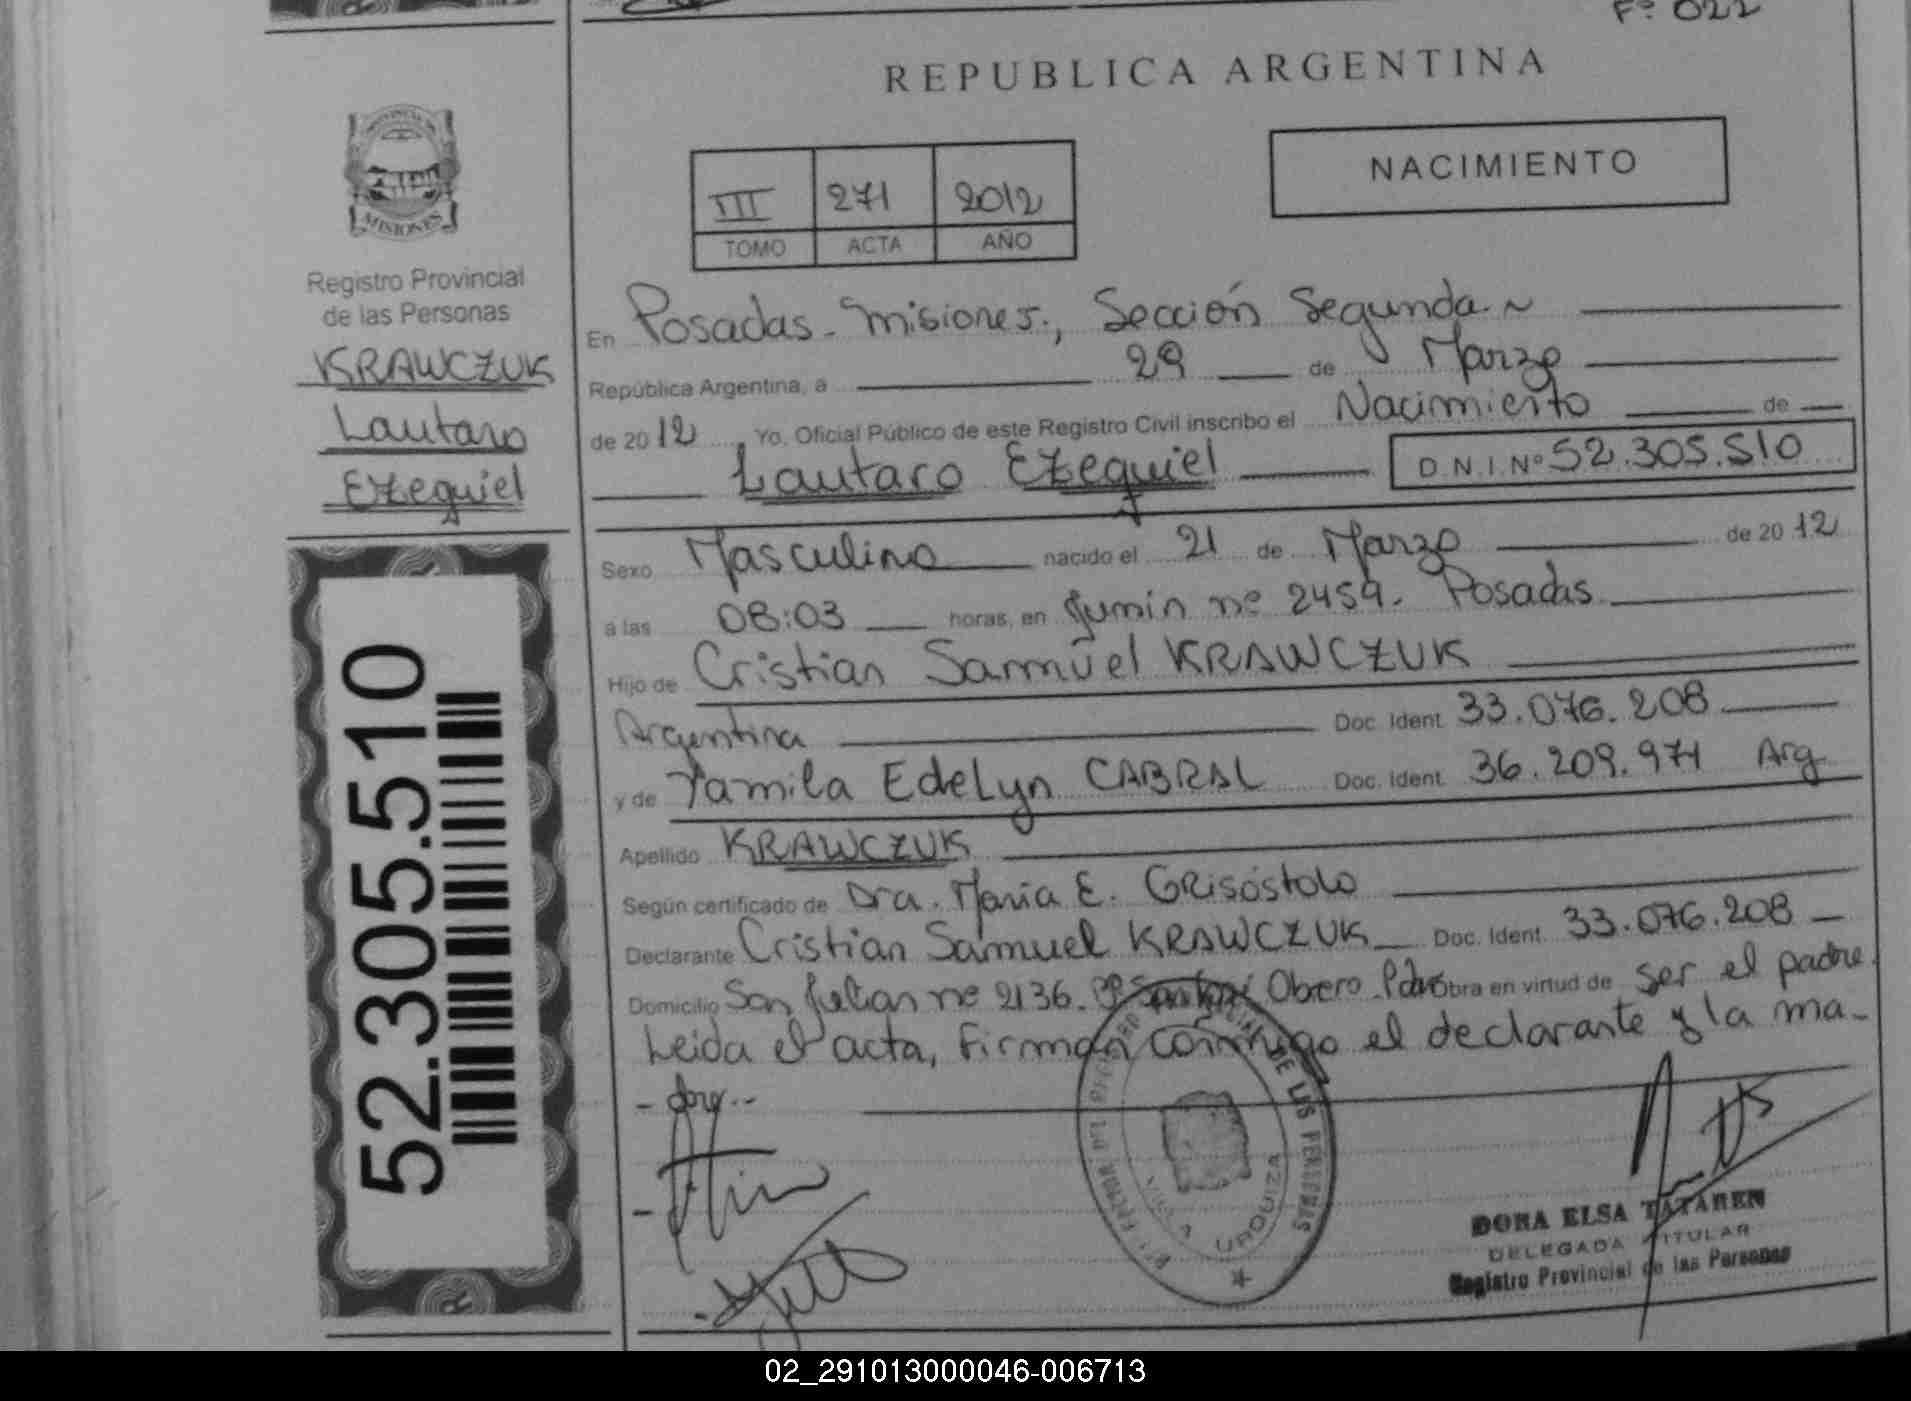 Fº 022
REPUBLICA ARGENTINA
PROVINCIA DE
MISIONES
Registro Provincial
de las Personas
KRAWCZUK
Lautaro
Ezequiel
52.305.510
III 271 2012
TOMO ACTA AÑO
NACIMIENTO
En Posadas - Misiones., Sección Segunda ~
República Argentina, a 29 de Marzo
de 2012, Yo, Oficial Público de este Registro Civil inscribo el Nacimiento de
Lautaro Ezequiel D.N.I. Nº 52.305.510
Sexo Masculino nacido el 21 de Marzo de 2012
a las 08:03 horas, en Junín nº 2459. Posadas
Hijo de Cristian Samuel KRAWCZUK
Argentina Doc. Ident. 33.076.208
y de Yamila Edelyn CABRAL Doc. Ident. 36.209.971 Arg
Apellido KRAWCZUK
Según certificado de Dra. María E. Grisóstolo
Declarante Cristian Samuel KRAWCZUK Doc. Ident. 33.076.208
Domicilio San Julian nº 2136. Obrero. Pdas Obra en virtud de ser el padre.
Leida el acta, firman conmigo el declarante y la ma-
- dre.--
DE LAS PERSONAS
URQUIZA
DORA ELSA TATAREN
DELEGADA TITULAR
Registro Provincial de las Personas
02_291013000046-006713